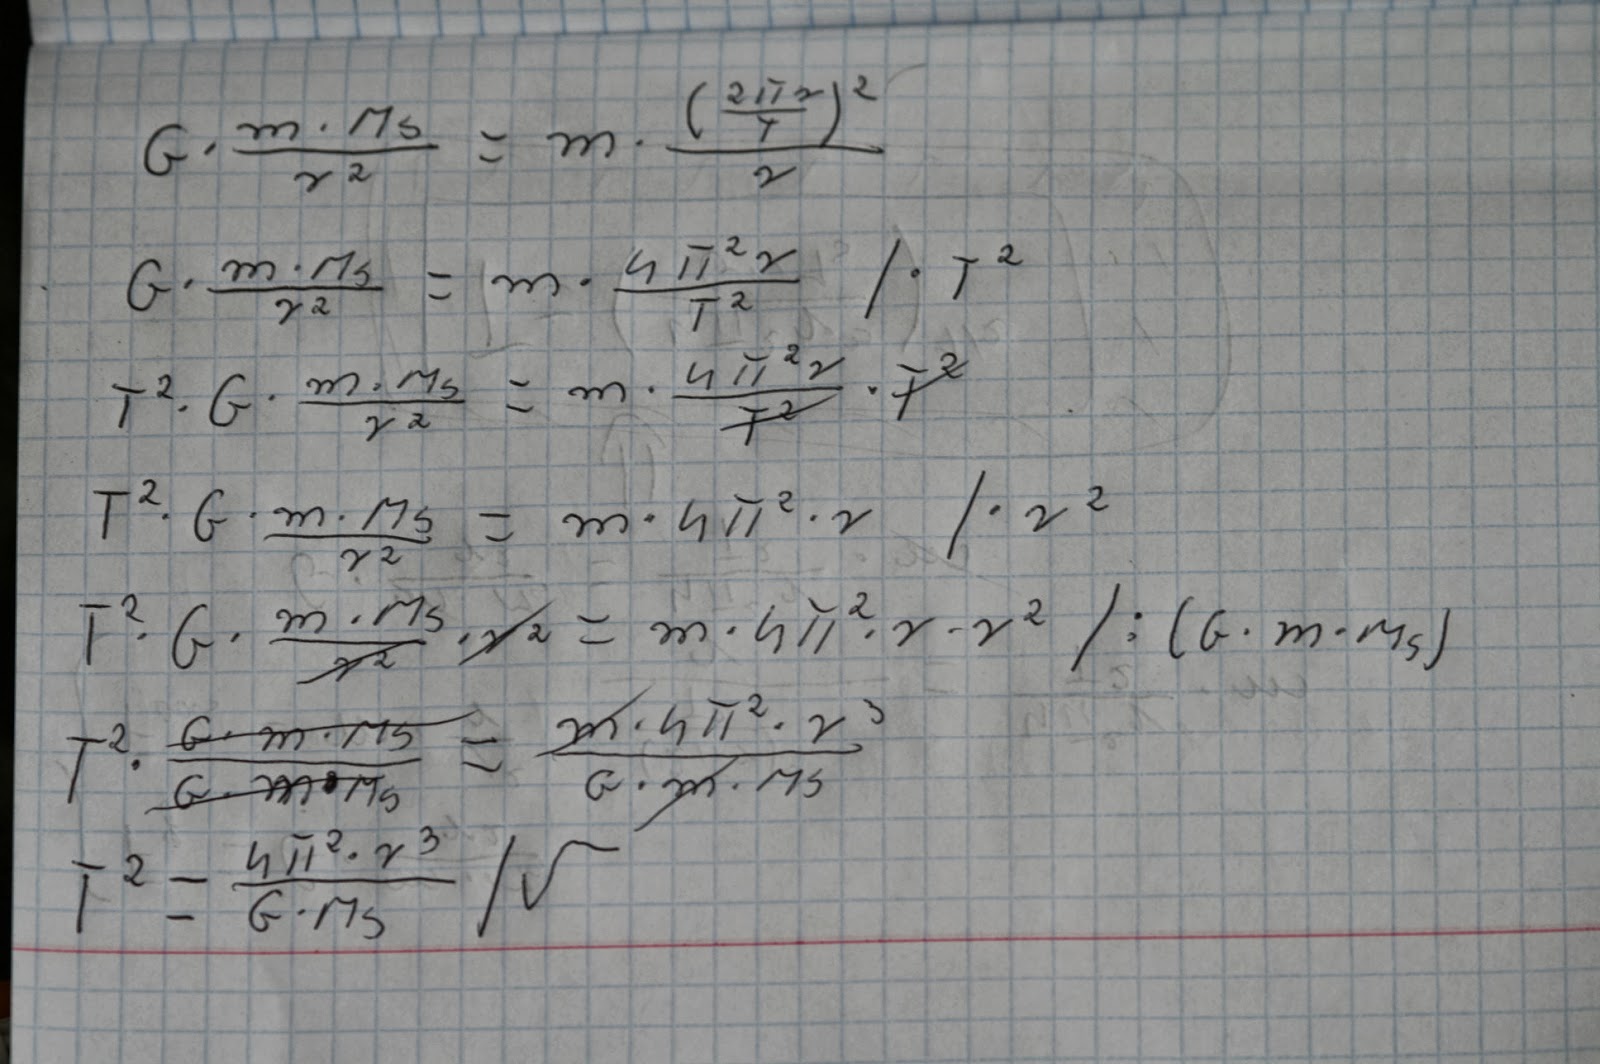 G · (m · Ms)/(r²) = m · ((2πr)/T)²/r
G · (m · Ms)/(r²) = m · (4π²r)/(T²) / · T²
T² · G · (m · Ms)/(r²) = m · (4π²r)/(T²) · T²
T² · G · (m · Ms)/(r²) = m · 4π² · r / · r²
T² · G · (m · Ms)/(r²) · r² = m · 4π² · r · r² / : (G · m · Ms)
T² · (G · m · Ms)/(G · m · Ms) = (m · 4π² · r³)/(G · m · Ms)
T² = (4π² · r³)/(G · Ms) / √